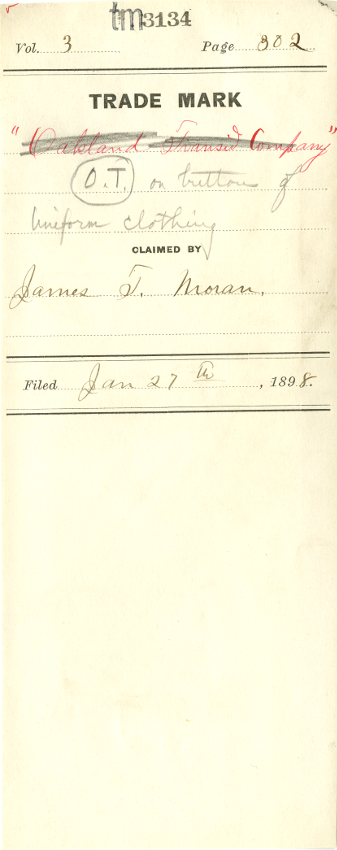 tm3134
Vol. 3 Page 302
TRADE MARK
"Oakland Transit Company"
O.T. on buttons of
Uniform clothing
CLAIMED BY
James T. Moran.
Filed Jan 27th, 1898.